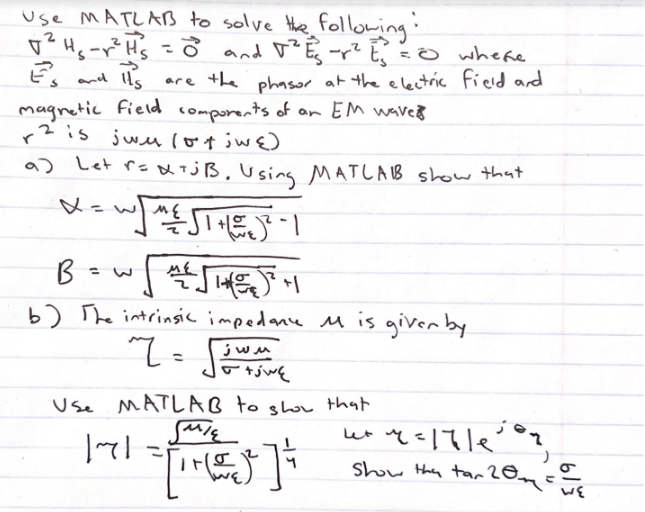 Use MATLAB to solve the following:
∇² H⃗s - r² H⃗s = 0⃗ and ∇² E⃗s - r² E⃗s = 0 where
E⃗s and H⃗s are the phasor at the electric field and
magnetic field components of an EM waves
r² is jwμ (σ + jwε)
a) Let r = α + jB. Using MATLAB show that
α = w √( με/2 √( 1 + (σ/wε)² - 1
B = w √( με/2 √( 1 + (σ/wε)² + 1
b) The intrinsic impedance μ is given by
η = √( jwμ / σ + jwε
Use MATLAB to show that
|η| = √μ/ε / [1 + (σ/wε)²]^1/4 Let η = |η|e^jθη,
Show tha tan 2θη = σ/wε